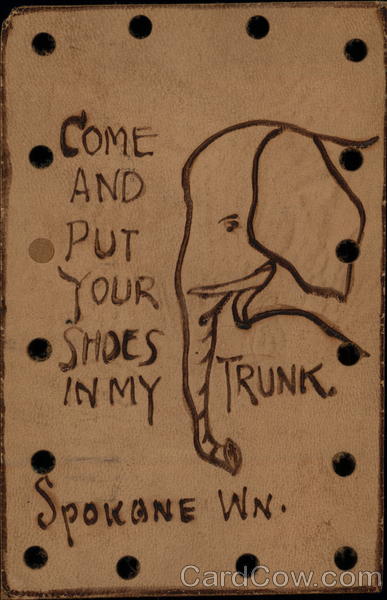 COME
AND
PUT
YOUR
SHOES
IN MY TRUNK.
SPOKANE WN.
CardCow.com